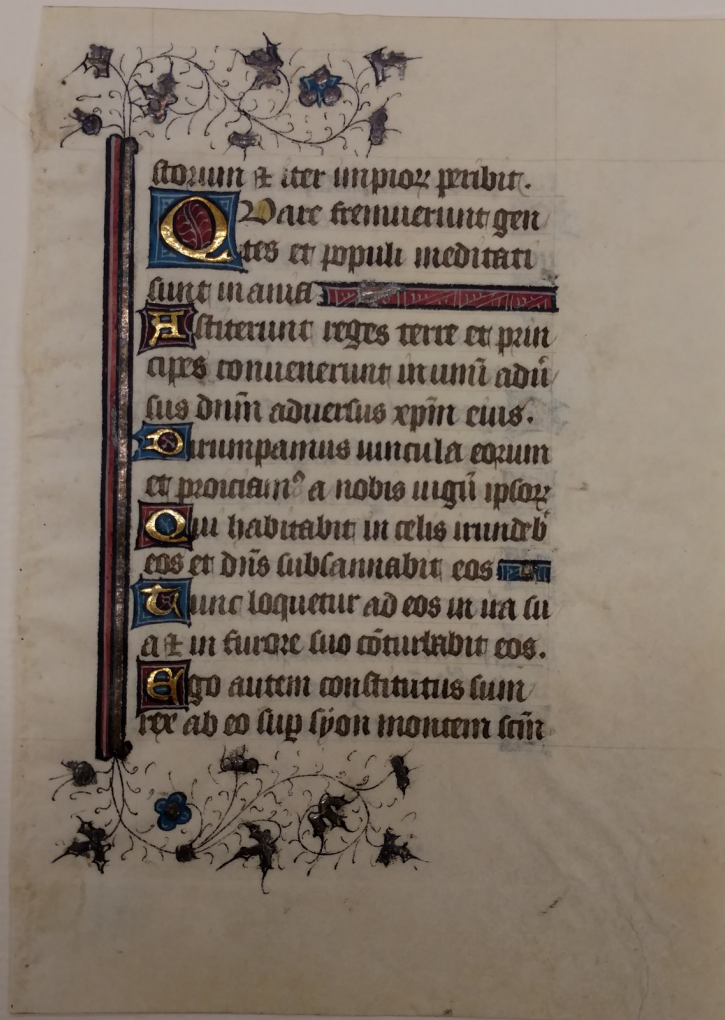 storum et iter impioꝝ peribit.
Quare fremuerunt gen
tes et populi meditati
sunt inania
Astiterunt reges terre et prin
cipes conuenerunt in unū adū
sus dn̄m aduersus xp̄m eius.
Dirumpamus uincula eorum
et proiciamꝰ a nobis iugū ipsoꝝ
Qui habitabit in celis irrideb̄
eos et dn̄s subsannabit eos
Tunc loquetur ad eos in ira su
a et in furore suo cōturbabit eos.
Ego autem constitutus sum
rex ab eo sup̱ syon montem scm̄